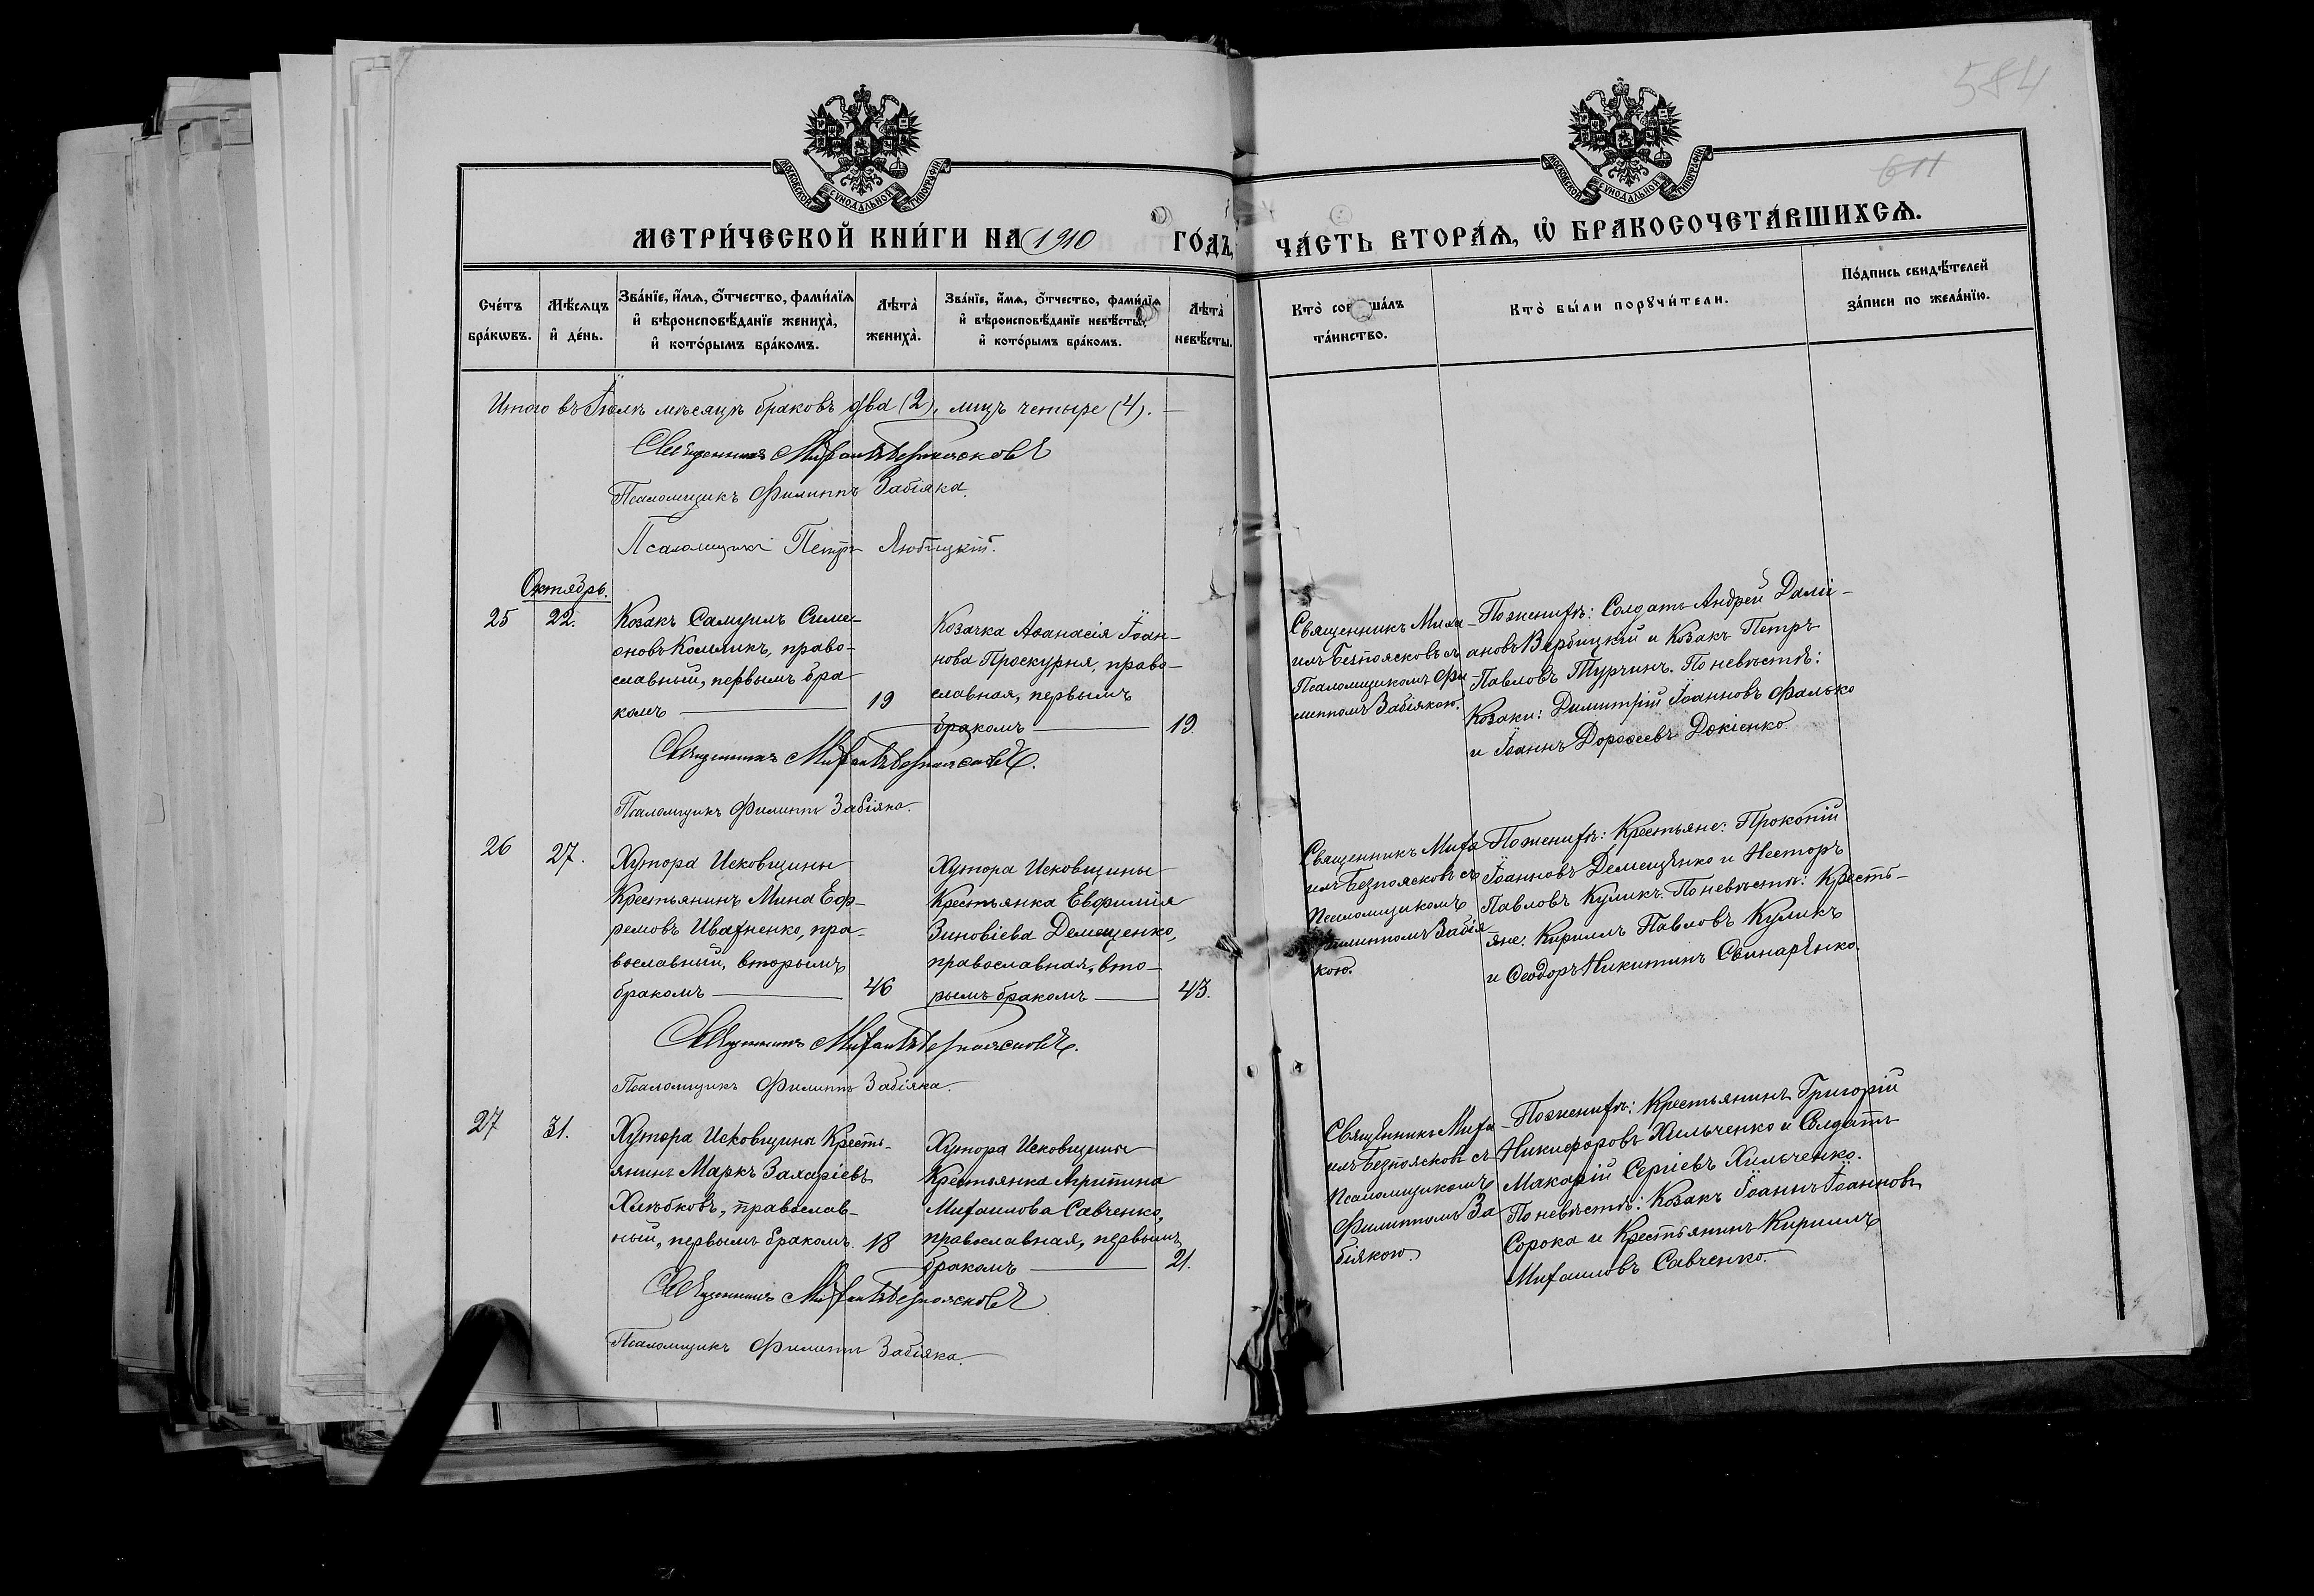 584
611
МОСКОВСКОЙ СѴНОДАЛЬНОЙ ТИПОГРАФІИ
МОСКОВСКОЙ СѴНОДАЛЬНОЙ ТИПОГРАФІИ
МЕТРИ́ЧЕСКОЙ КНИ́ГИ НА 1910 ГО́ДЪ,
ЧА́СТЬ ВТОРА́Ѧ, Ѽ БРАКОСОЧЕТА́ВШИХСѦ.
Сче́тъ
бра́кѡвъ.
Мѣ́сѧцъ
и҆ де́нь.
Зва́нїе, и҆́мѧ, ѻ҆́тчество, фами́лїѧ
и҆ вѣроисповѣ́данїе жениха̀,
и҆ кото́рымъ бра́комъ.
Лѣ́та
жениха̀.
Зва́нїе, и҆́мѧ, ѻ҆́тчество, фами́лїѧ
и҆ вѣроисповѣ́данїе невѣ́сты,
и҆ кото́рымъ бра́комъ.
Лѣ́та
невѣ́сты.
Кто̀ соверша́лъ
та́инство.
Кто̀ бы́ли порꙋчи́тели.
По́дпись свидѣ́телей
за́писи по жела́нїю.
Итого въ Іюлѣ мѣсяцѣ браковъ два (2), лицъ четыре (4).
Священникъ Михаилъ Безпоясковъ
Псаломщикъ Филиппъ Забіяка.
Псаломщикъ Петръ Любицкій.
Октябрь.
25
22.
Козакъ Самуилъ Симе-
оновъ Колликъ, право-
славный, первымъ бра
комъ
19
Козачка Аѳанасія Іоан-
нова Проскурня, право-
славная, первымъ
бракомъ
19.
Священникъ Миха-
илъ Безпоясковъ съ
Псаломщикомъ Фи-
липпомъ Забіякою.
По женихѣ: Солдатъ Андрей Далі-
ановъ Вербицкій и Козакъ Петръ
Павловъ Турчинъ. По невѣстѣ:
Козаки: Димитрій Іоанновъ Фалько
и Іоаннъ Дороѳеевъ Докіенко.
Священникъ Михаилъ Безпоясковъ.
Псаломщикъ Филиппъ Забіяка.
26
27.
Хутора Исковщины
Крестьянинъ Мина Еф-
ремовъ Ивахненко, пра-
вославный, вторымъ
бракомъ
46
Хутора Исковщины
Крестьянка Евфимія
Зиновіева Демещенко,
православная, вто-
рымъ бракомъ
43.
Священникъ Миха
илъ Безпоясковъ съ
Псаломщикомъ
Филиппомъ Забія-
кою.
По женихѣ: Крестьяне: Прокопій
Іоанновъ Демещенко и Несторъ
Павловъ Куликъ. По невѣстѣ: Кресть-
яне: Кириллъ Павловъ Куликъ
и Ѳеодоръ Никитинъ Свинаренко.
Священникъ Михаилъ Безпоясковъ.
Псаломщикъ Филиппъ Забіяка.
27
31.
Хутора Исковщины Кресть-
янинъ Маркъ Захаріевъ
Хлѣбковъ, православ-
ный, первымъ бракомъ.
18
Хутора Исковщины
Крестьянка Агрипина
Михаилова Савченко,
православная, первымъ
бракомъ
21.
Священникъ Миха-
илъ Безпоясковъ съ
Псаломщикомъ
Филиппомъ За
біякою.
По женихѣ: Крестьянинъ Григорій
Никифоровъ Хильченко и Солдатъ
Макарій Сергіевъ Хильченко.
По невѣстѣ: Козакъ Іоаннъ Іоанновъ
Сорока и Крестьянинъ Кириллъ
Михаиловъ Савченко.
Священникъ Михаилъ Безпоясковъ
Псаломщикъ Филиппъ Забіяка.